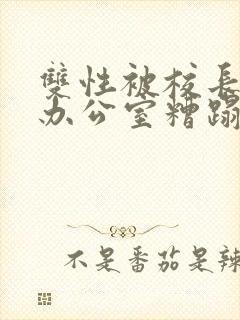 雙性被校長
办公室糟蹋
不是番茄是辣